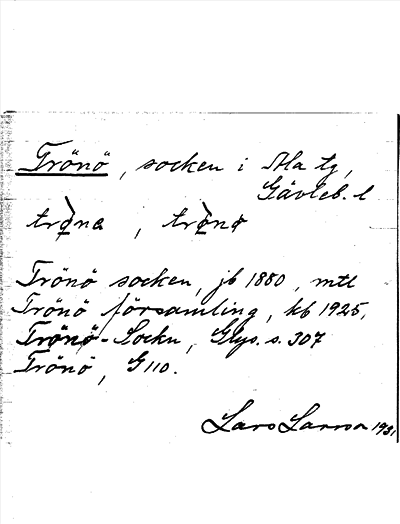 Trönö, socken i Ala tg,
Gävleb. l
tròna, trònø
Trönö socken, jb 1880, mtl
Trönö församling, kb 1925,
Trönö-Sockn, Glys. s. 307
Trönö, G 110.
Lars Larsson 1931